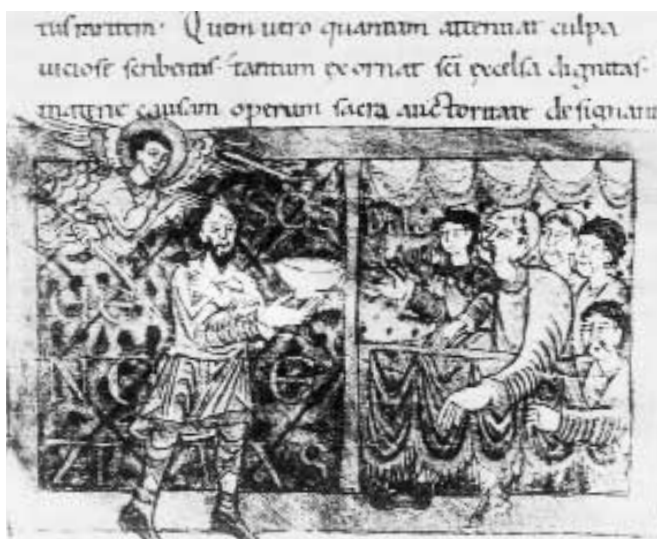 Quem uero quantum attenuat culpa
uiciose scribentis· tantum exornat sci excelsa dignitas·
materie causam operum sacra auctoritate designant
SCS